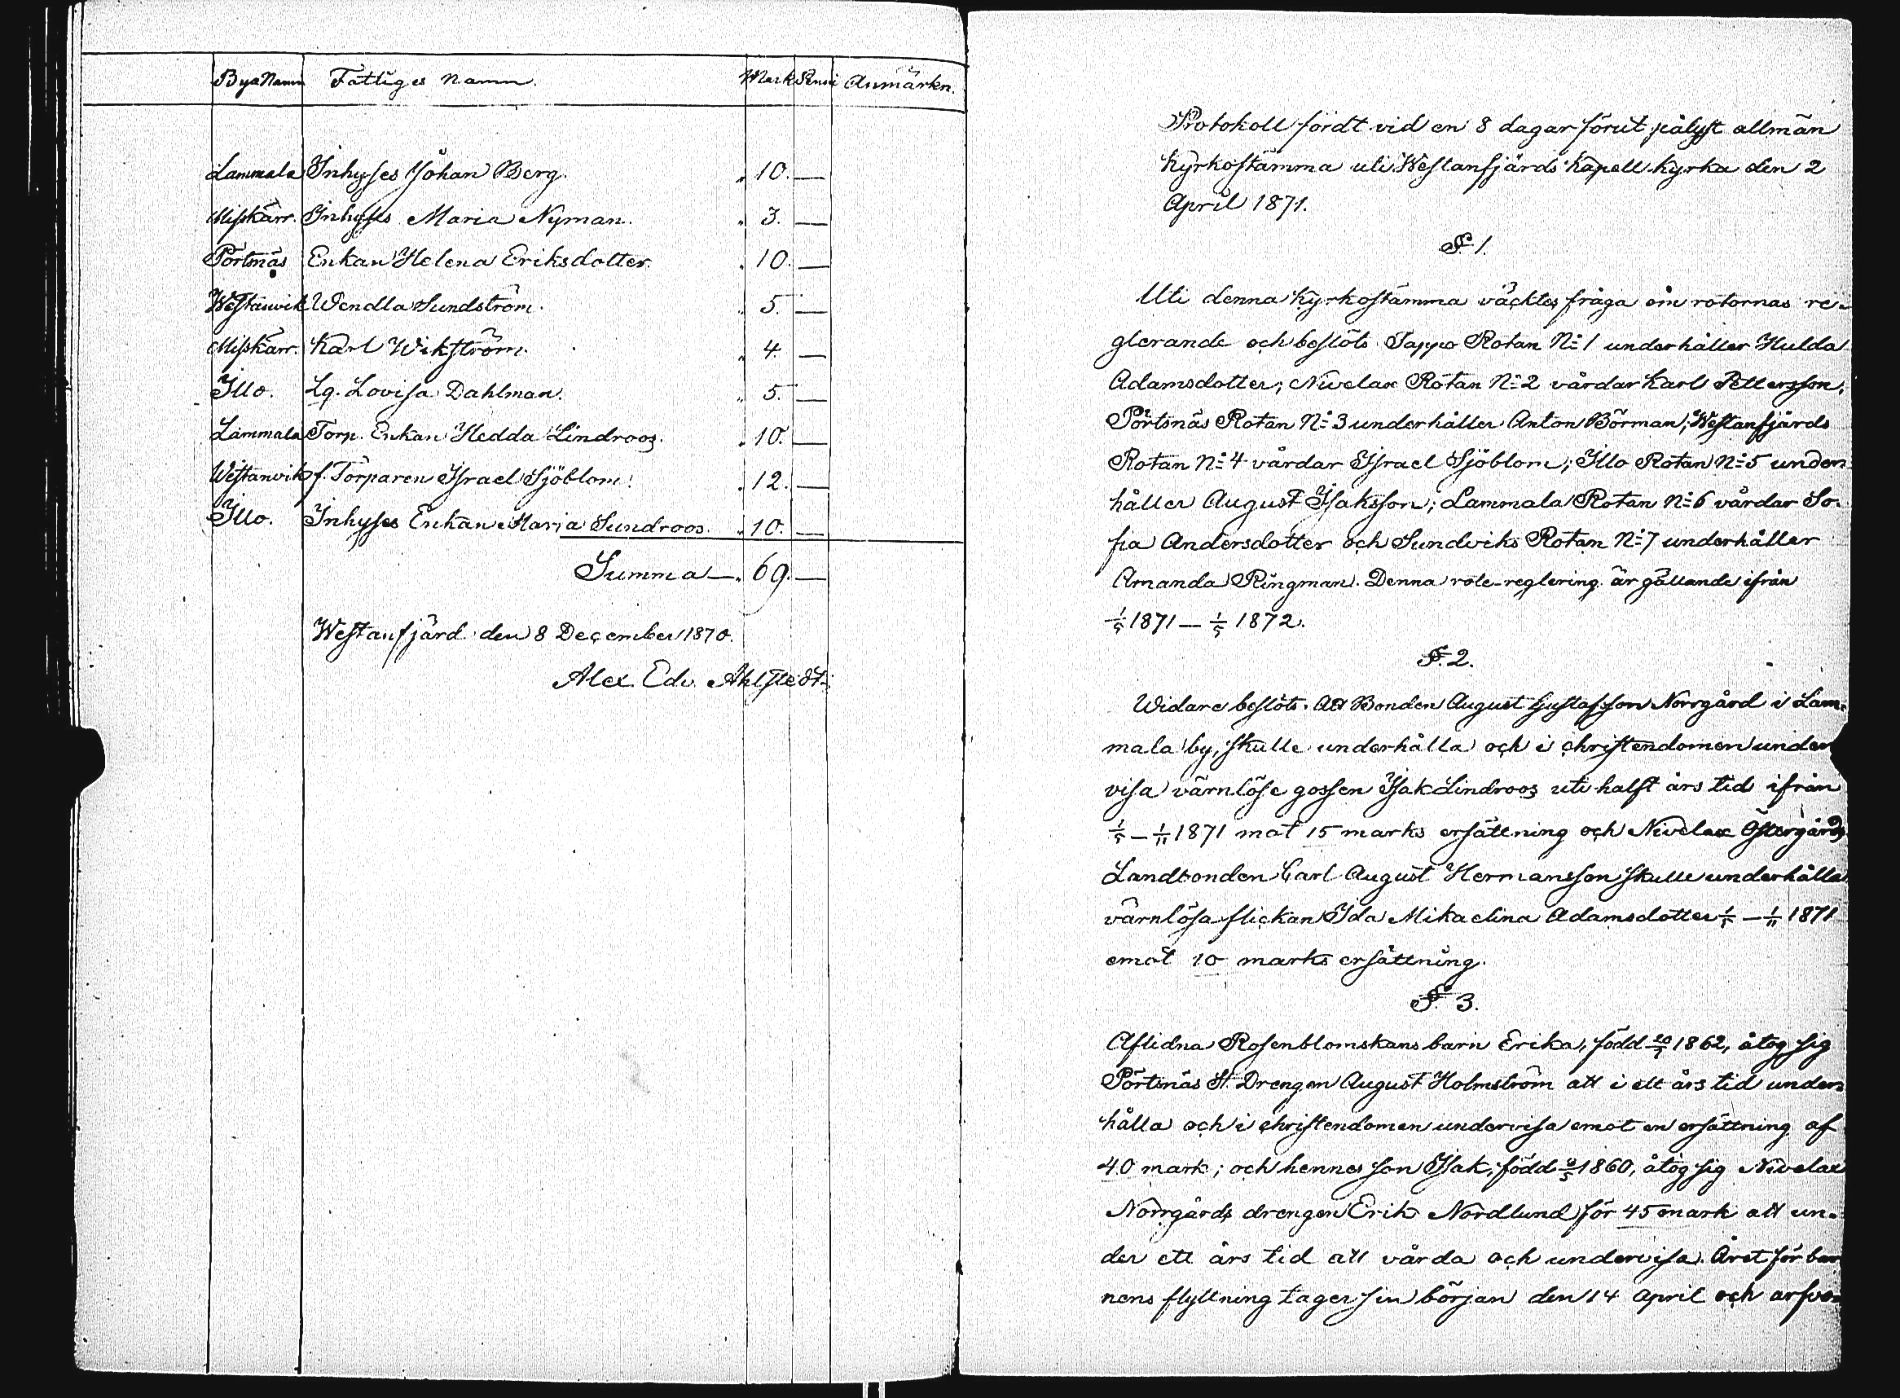 Bya Namn Fattiges namn. Mark Penni Anmärkn.
Lammala Inhyses Johan Berg. " 10. —
Misskärr. Inhyses Maria Nyman. " 3. —
Pörtsnäs Enkan Helena Eriksdotter. " 10. —
Westanvik Wendla Sundström. " 5. —
Misskärr. Karl Wikström. " 4. —
Illo. Lg. Lovisa Dahlman. " 5. —
Lammala Torp. Enkan Hedda Lindroos. " 10. —
Westanvik f. Torparen Israel Sjöblom. " 12. —
Illo. Inhyses Enkan Maria Sundroos. " 10. —
Summa — " 69. —
Westanfjärd den 8 December 1870.
Alex. Edv. Ahlstedt.
Protokoll fördt vid en 8 dagar förut pålyst allmän
Kyrkostämma uti Westanfjärds Kapell-kyrka den 2
April 1871.
§. 1.
Uti denna Kyrkostämma väcktes fråga om rotornas re-
glerande och beslöts Tappo Rotan No 1 underhåller Hulda
Adamsdotter; Nivelax Rotan No 2 vårdar Karl Pettersson;
Pörtsnäs Rotan No 3 underhåller Anton Börman; Westanfjärds
Rotan No 4 vårdar Israel Sjöblom; Illo Rotan No 5 under-
håller August Isaksson; Lammala Rotan No 6 vårdar So-
fia Andersdotter och Sundviks Rotan No 7 underhåller
Amanda Ringman. Denna rote-reglering är gällande ifrån
1/5 1871 — 1/5 1872.
§. 2.
Widare beslöts. Att Bonden August Gustafsson Norrgård i Lam-
mala by, skulle underhålla och i christendomen under
visa värnlöse gossen Isak Lindroos uti halft års tid ifrån
1/5 — 1/11 1871 mot 15 marks ersättning och Nivelax Östergårds
Landbonden Carl August Hermansson skulle underhålla
värnlösa flickan Ida Mikaelina Adamsdotter 1/5 — 1/11 1871
emot 10 marks ersättning.
§. 3.
Aflidna Rosenblomskans barn Erika, född 20/7 1862, åtog sig
Pörtsnäs St. Drengen August Holmström att i ett års tid under-
hålla och i christendomen undervisa emot en ersättning af
40 mark; och hennes son Isak, född 1860, åtog sig Nivelax
Norrgårds drengen Erik Nordlund för 45 mark att un-
der ett års tid att vårda och undervisa. Året för bar
nens flyttning tager sin början den 14 April och arfvo-